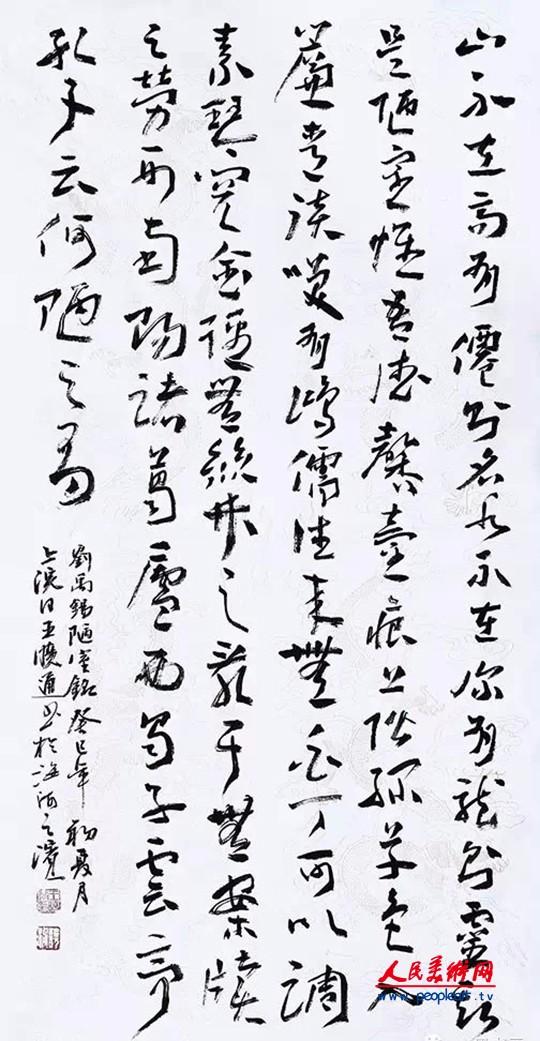 山不在高有僊則名水不在深有龍則靈斯
是陋室惟吾德馨苔痕上階綠草色入
簾青談笑有鴻儒往來無白丁可以調
素琴閱金經無絲竹之亂耳無案牘
之勞形南陽諸葛廬西蜀子雲亭
孔子云何陋之有
劉禹錫陋室銘癸巳年初夏月
上浣日王曉通書於河之濱
人民美術网
www.peopleart.tv